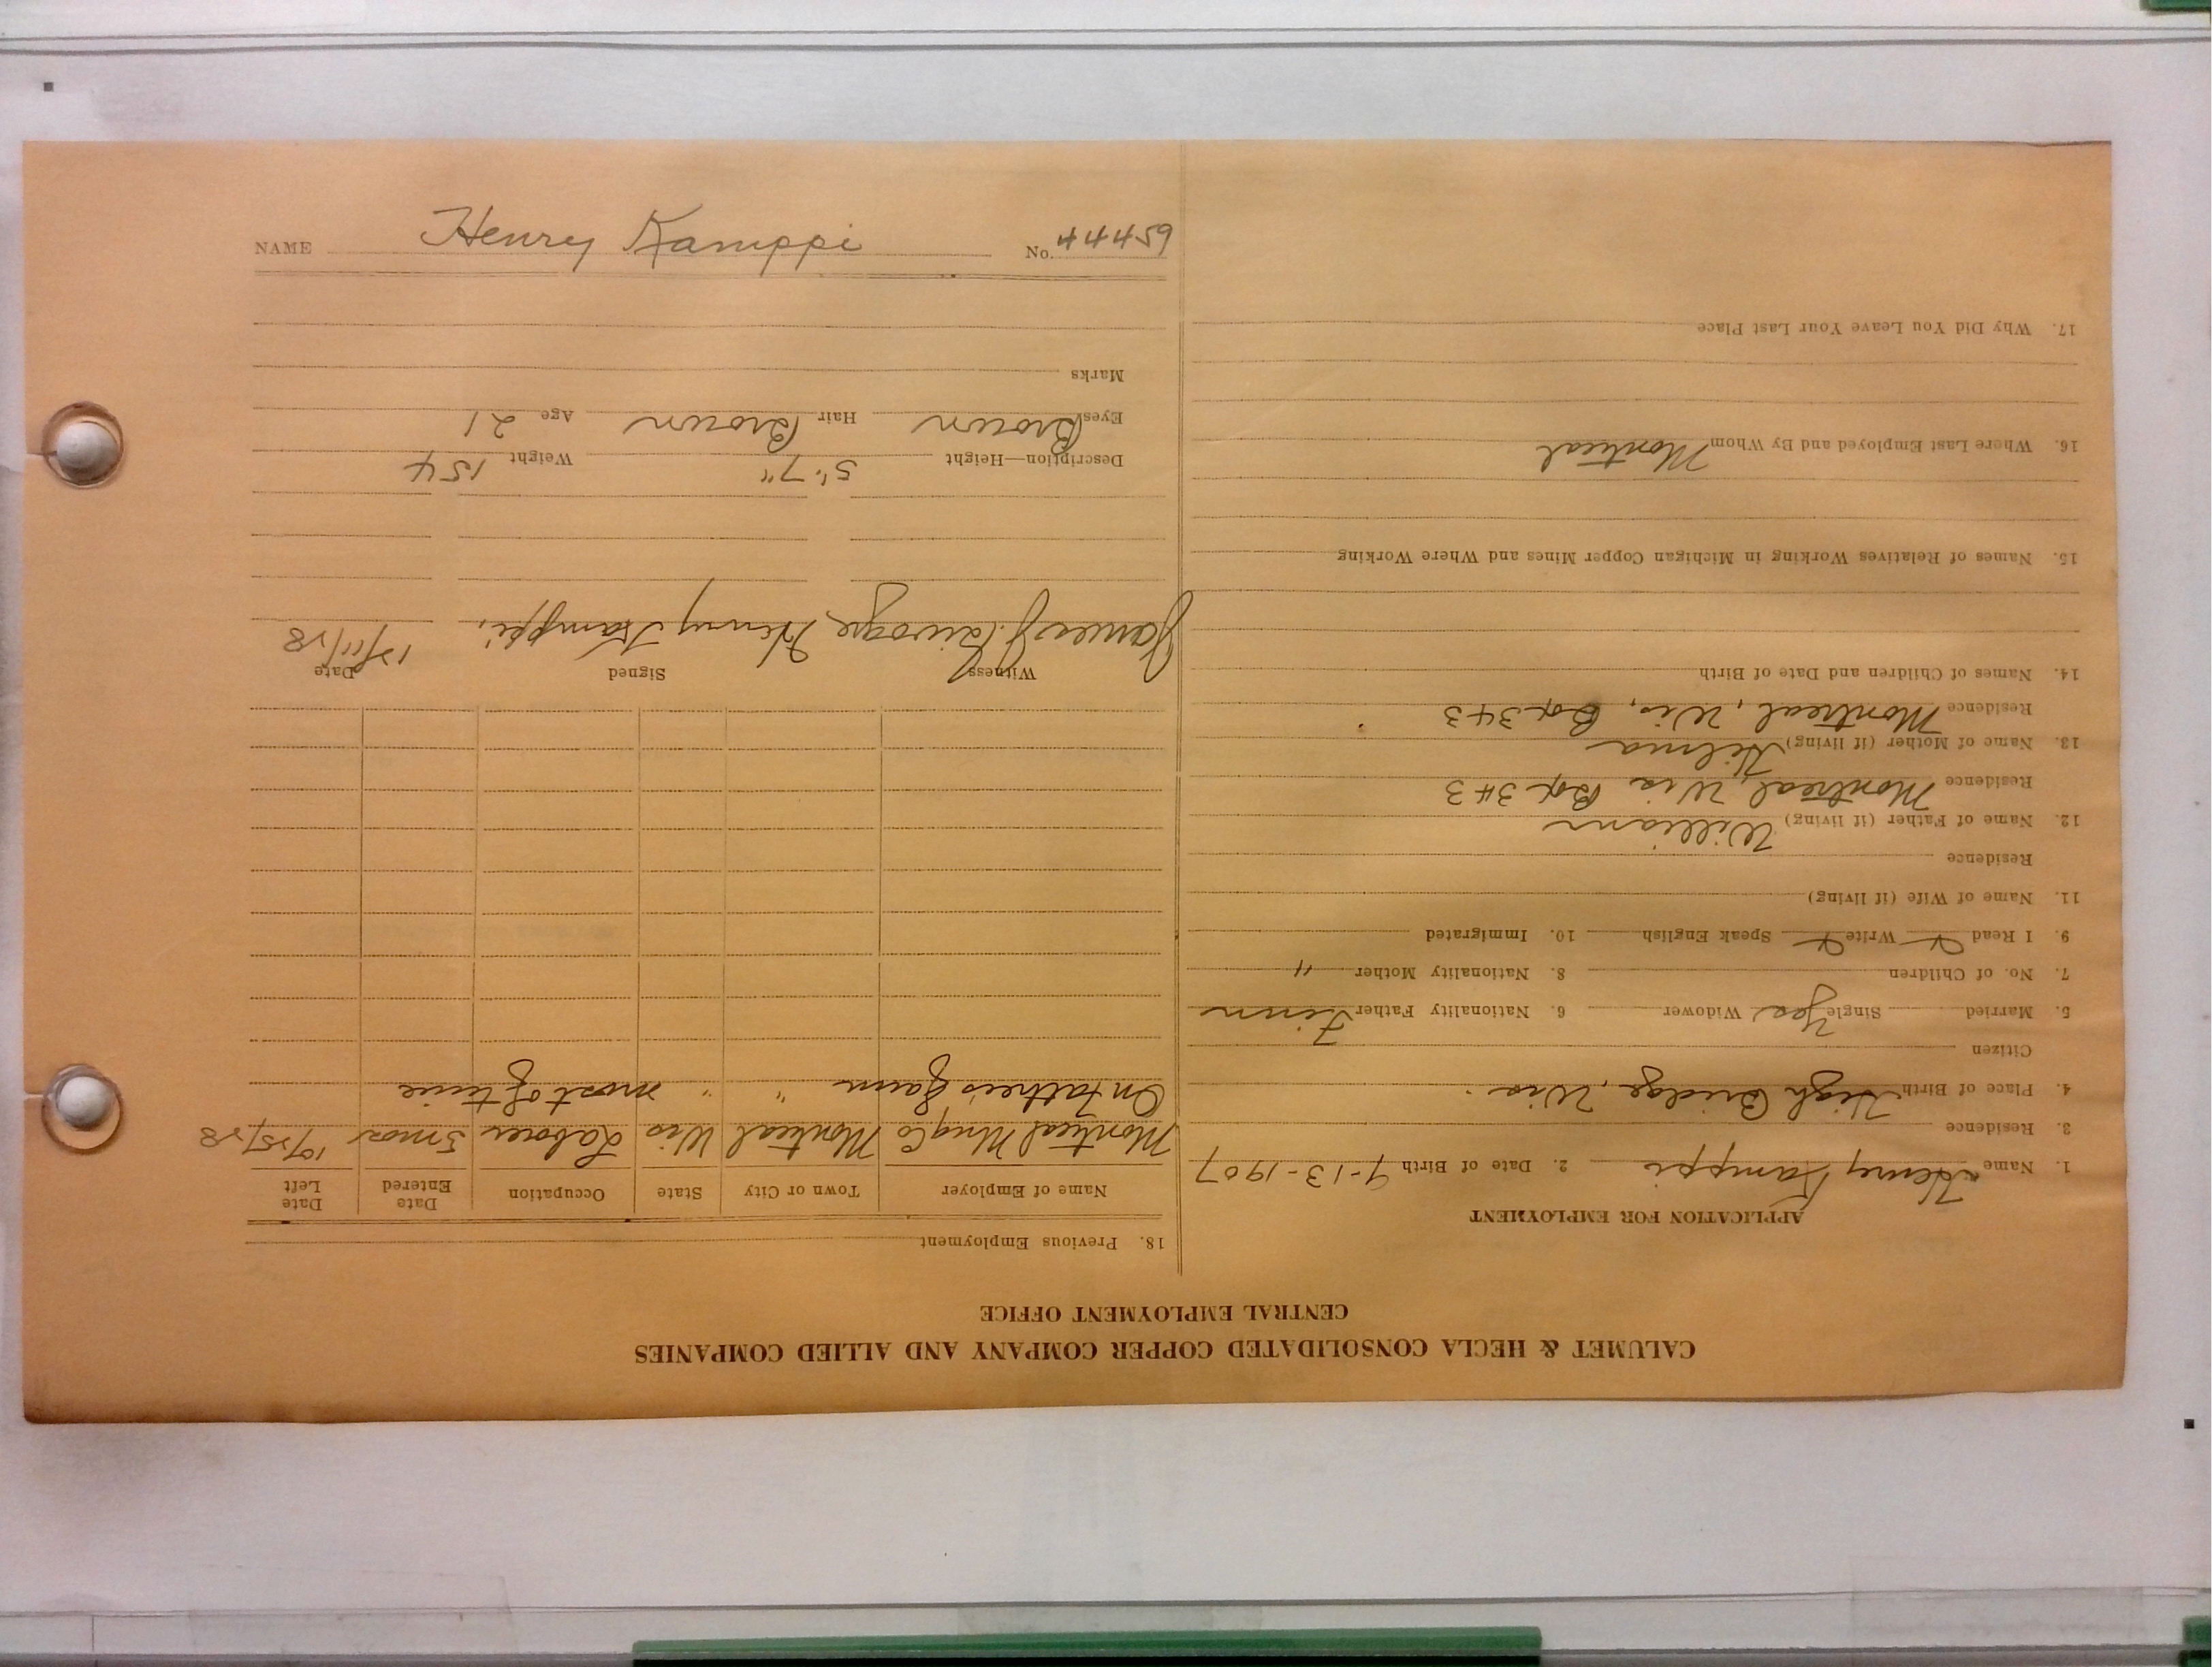 NAME Henry Kamppi No. 44459
CALUMET & HECLA CONSOLIDATED COPPER COMPANY AND ALLIED COMPANIES
CENTRAL EMPLOYMENT OFFICE
APPLICATION FOR EMPLOYMENT
1. Name Henry Kamppi 2. Date of Birth 9-13-1907
3. Residence
4. Place of Birth High Bridge, Wis.
Citizen
5. Married Single Yes Widower 6. Nationality Father Finn
7. No. of Children 8. Nationality Mother "
9. I Read Write Speak English 10. Immigrated
11. Name of Wife (if living)
Residence
12. Name of Father (if living) William
Residence Montreal, Wis Box 343
13. Name of Mother (if living) Hilma
Residence Montreal, Wis, Box 343
14. Names of Children and Date of Birth
15. Names of Relatives Working in Michigan Copper Mines and Where Working
16. Where Last Employed and By Whom Montreal
17. Why Did You Leave Your Last Place
18. Previous Employment
Name of Employer Town or City State Occupation Date Entered Date Left
Montreal Mng Co Montreal Wis Laborer 5 mos 10/25/28
On father's farm " " most of time
Witness Signed Date
James J. Henry Kamppi, 12/11/28
Description—Height 5'.7" Weight 154
Eyes Brown Hair Brown Age 21
Marks